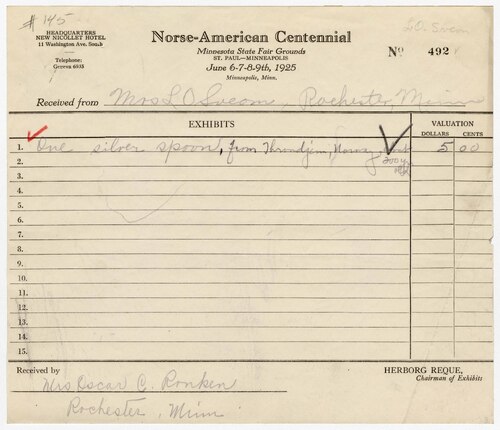 # 145
HEADQUARTERS
NEW NICOLLET HOTEL
11 Washington Ave. South
Telephone:
Geneva 6933
Norse-American Centennial
Minnesota State Fair Grounds
ST. PAUL—MINNEAPOLIS
June 6-7-8-9th, 1925
Minneapolis, Minn.
No 492
Received from Mrs L O Sveom, Rochester, Minn
EXHIBITS
VALUATION
DOLLARS CENTS
1. One silver spoon, from Throndjem, Norway, 5 00
2.
3.
4.
5.
6.
7.
8.
9.
10.
11.
12.
13.
14.
15.
Received by
Mrs Oscar C. Ronken
Rochester, Minn.
HERBORG REQUE,
Chairman of Exhibits